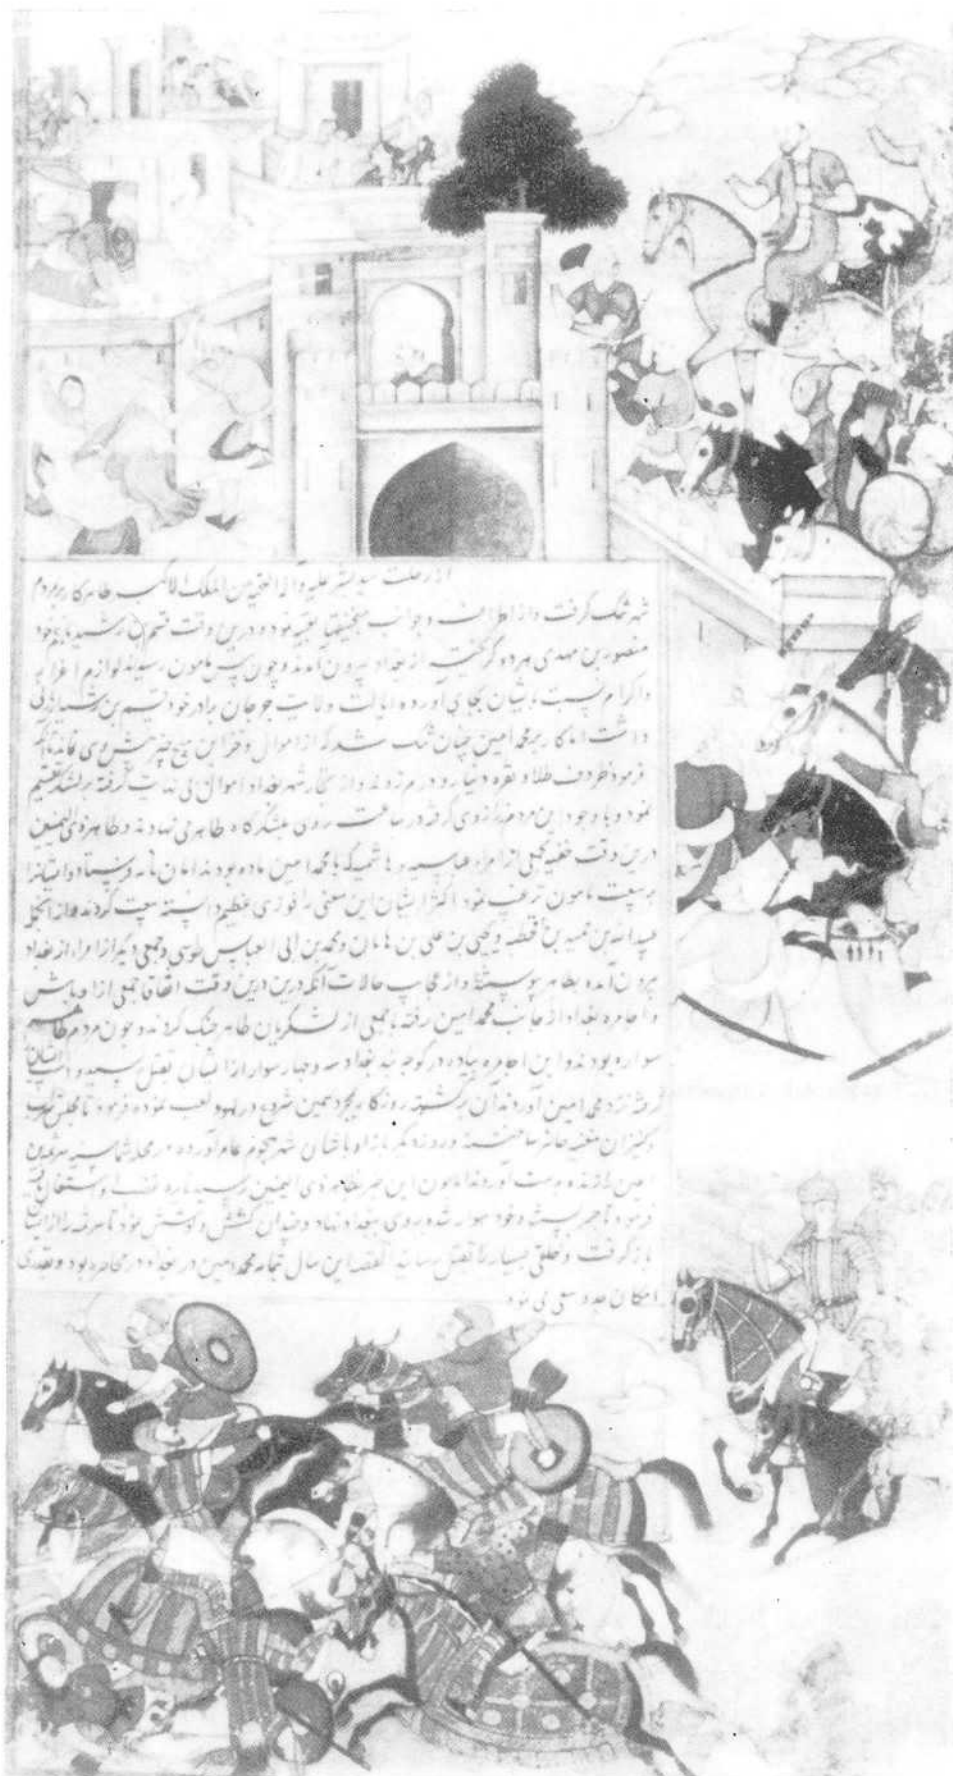 از رحلت
شهر تنگ گرفت و از اطراف و جوانب منجنیقها تعبیه نمود و درین وقت
منصور بن مهدی هر دو گریخته از بغداد بیرون آمدند و چون پیش مامون رسیدند لوازم اعزاز
و اکرام نسبت بایشان بجای آورده ایالت ولایت جرجان برادر خود
داشت اما کار بر محمد امین چنان تنگ شد که از اموال و خزاین هیچ چیز پیش وی نماند
فرمود ظروف طلا و نقره دینار و درم زدند و از تجار شهر بغداد اموال بی نهایت گرفته بر لشکر تقسیم
نمود و با وجود این مردم از وی گرفته در ساعت روی بلشکرگاه طاهر می نهادند و طاهر ذوالیمینین
درین وقت خفیه بجمعی از امراء عباسیه و هاشمیه که با محمد امین مانده بودند امان نامه فرستاد و ایشانرا
ببیعت مامون ترغیب نمود اکثر ایشان این معنی را فوزی عظیم دانسته بیعت کردند و از انجمله
عبدالله بن حمید بن قحطبه و یحیی بن علی بن ماهان و محمد بن ابی العباس طوسی و جمعی دیگر از امراء از بغداد
بیرون آمده بطاهر پیوستند و از عجایب حالات آنکه درین وقت اتفاقا جمعی از اوباش
و اجامره بغداد از جانب محمد امین رفته با جمعی از لشکریان طاهر جنگ کردند و چون مردم طاهر همه
سواره بودند و این اجامره پیاده در کوچه بند بغداد سه چهار سوار از ایشان بقتل رسید و اسب ایشان
گرفته نزد محمد امین آوردند آن برگشته روزگار بمجرد همین شروع در لهو و لعب نموده فرمود تا مجلس شراب
و کنیزان مغنیه حاضر ساختند و روز دیگر باز اوباشان شهر هجوم عام آورده در محله شماسیه
امین را زده بدست آوردند اما چون این خبر بطاهر ذی الیمینین رسید
فرمود تا جسر بستند و خود سوار شده روی ببغداد نهاد و چندان کشش و کوشش نمود تا هرثمه را از ایشان
باز گرفت و خلقی بسیار را بقتل رسانید القصه این سال تمام محمد امین در بغداد در محاصره بود و بقدر
امکان جد و سعی می نمود